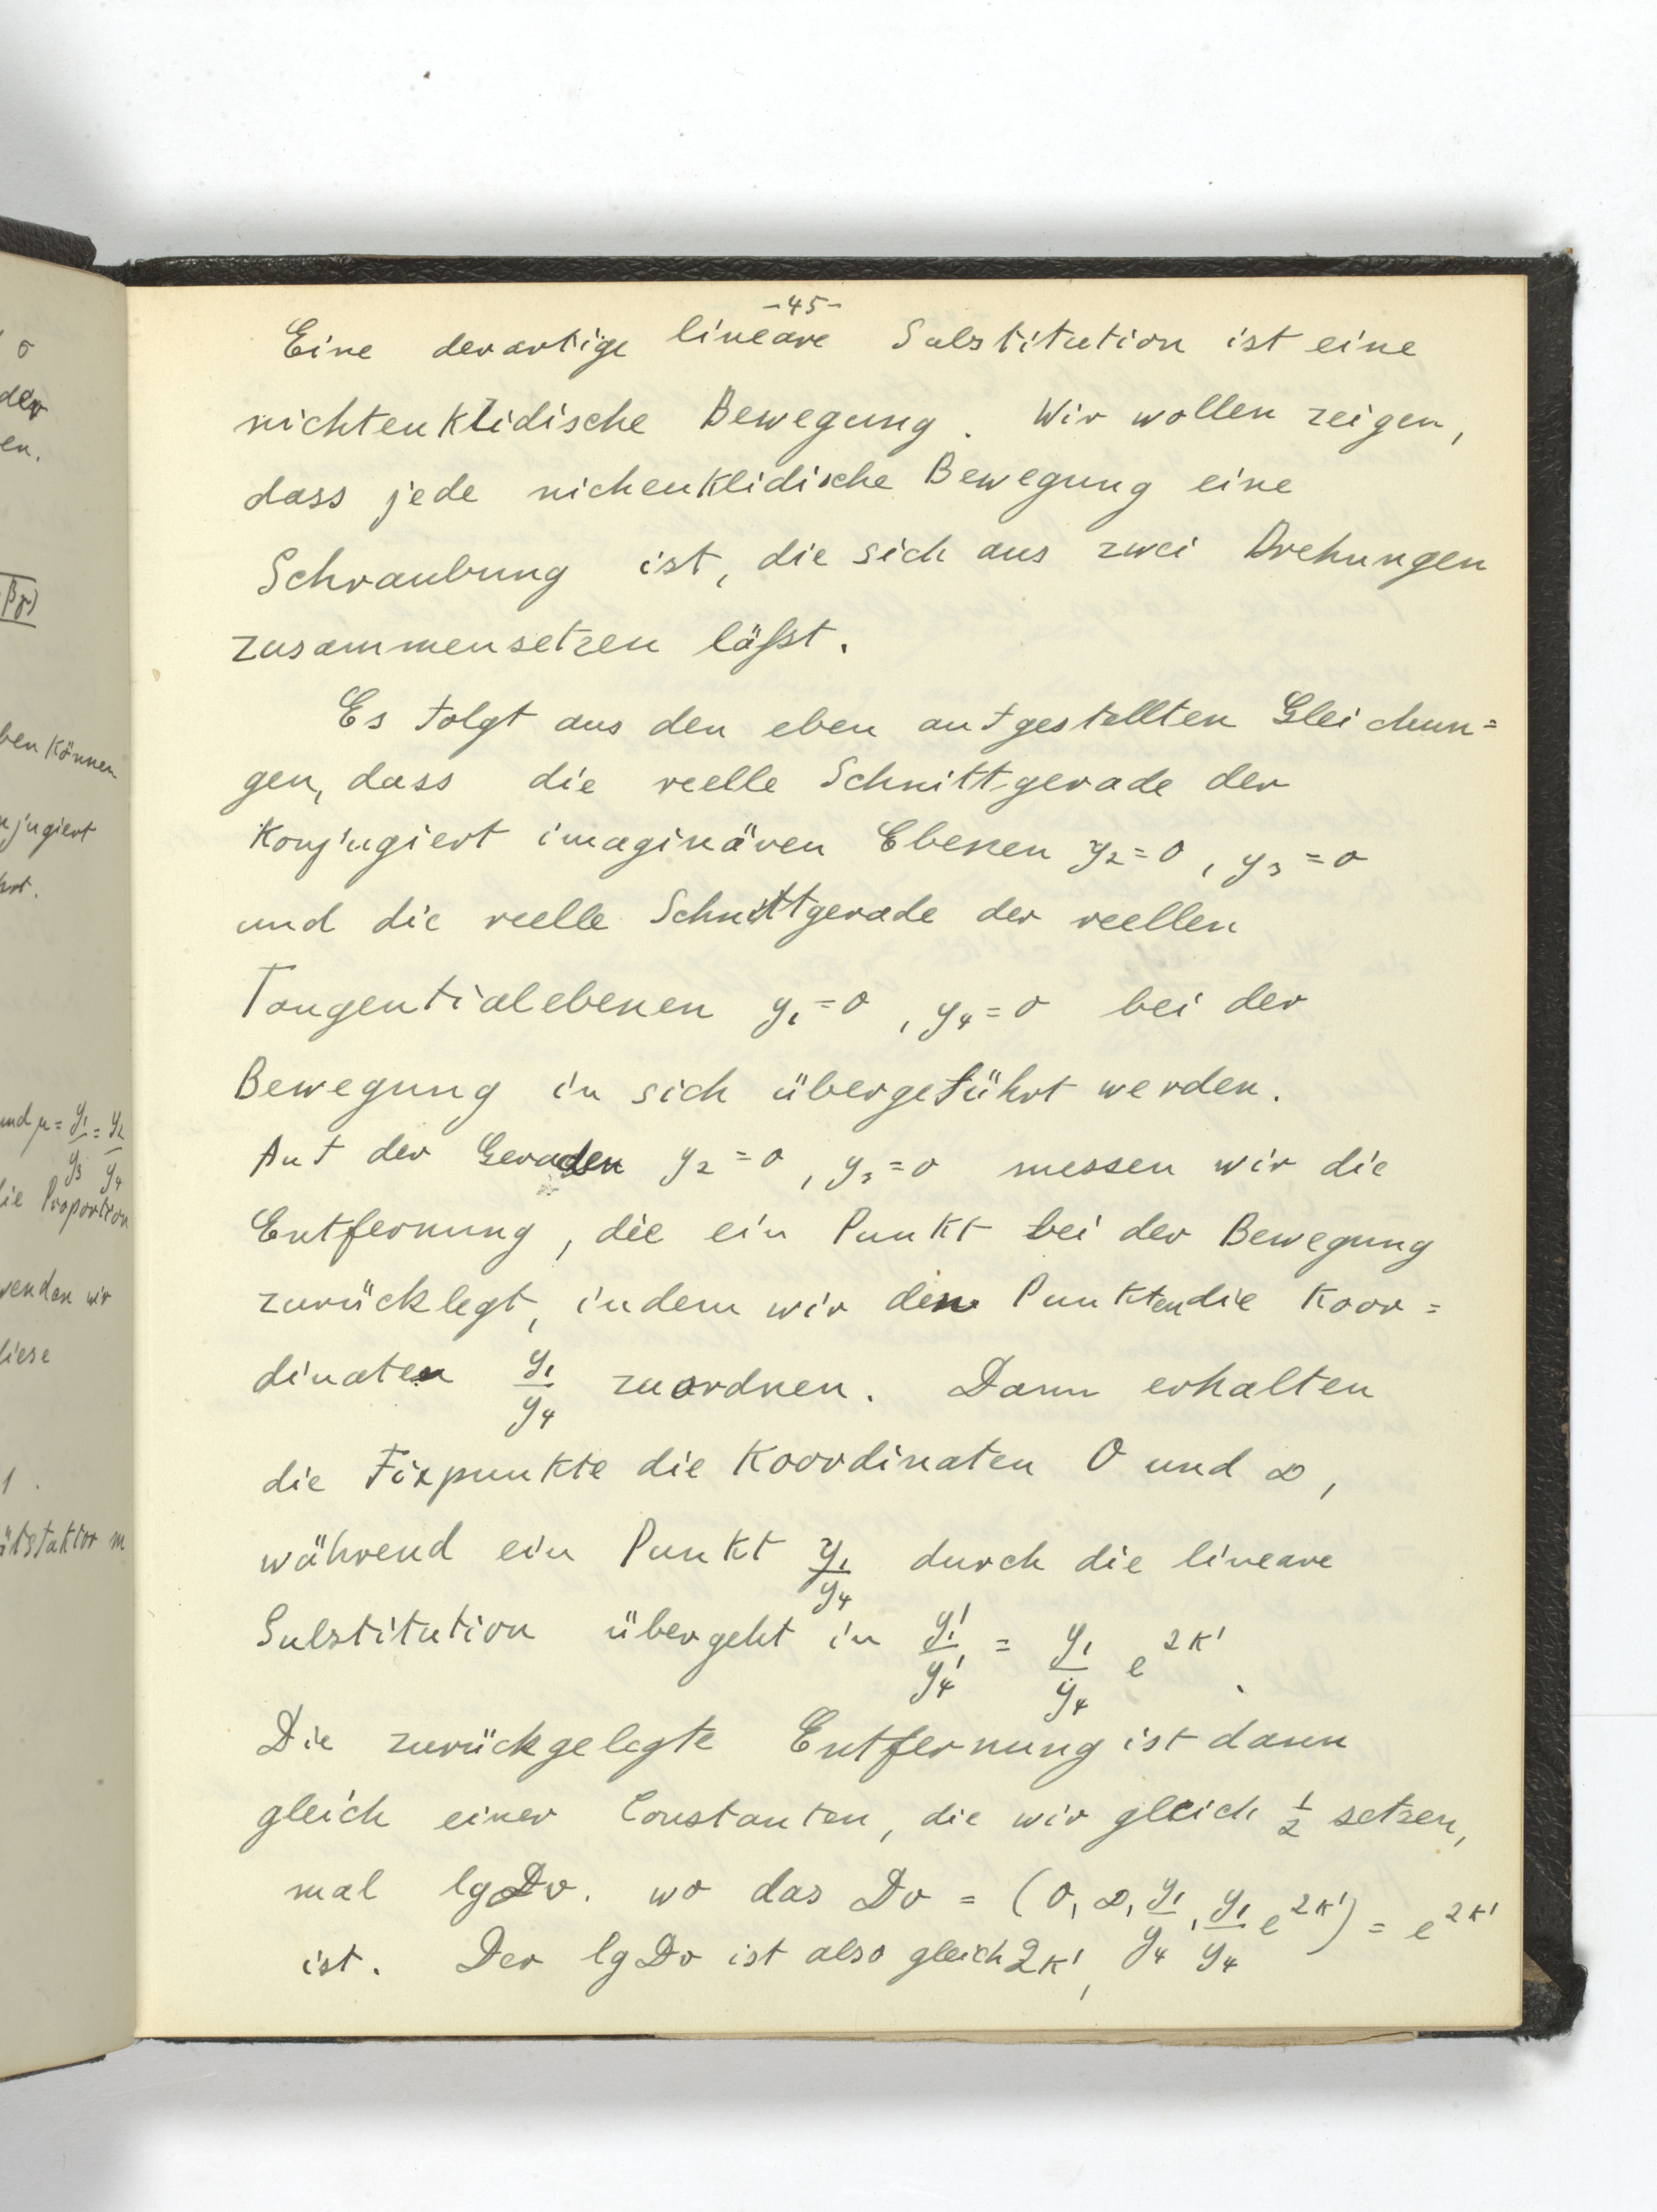 -45-
Eine derartige lineare Substitution ist eine
nichteuklidische Bewegung. Wir wollen zeigen,
dass jede nicheuklidische Bewegung eine
Schraubung ist, die sich aus zwei Drehungen
zusammensetzen läßt.
Es folgt aus den eben aufgestellten Gleichun=
gen, dass die reelle Schnittgerade der
konjugiert imaginären Ebenen y₂=0, y₃=0
und die reelle Schnittgerade der reellen
Tangentialebenen y₁=0, y₄=0 bei der
Bewegung in sich übergeführt werden.
Auf der Geraden y₂=0, y₃=0 messen wir die
Entfernung, die ein Punkt bei der Bewegung
zurücklegt, indem wir den Punkten die Koor=
dinaten y₁/y₄ zuordnen. Dann erhalten
die Fixpunkte die Koordinaten 0 und ∞,
während ein Punkt y₁/y₄ durch die lineare
Substitution übergeht in y₁'/y₄' = y₁/y₄ e^{2k'}.
Die zurückgelegte Entfernung ist dann
gleich einer Constanten, die wir gleich 1/2 setzen,
mal lg Dv. wo das Dv = (0, ∞, y₁/y₄, y₁/y₄ e^{2k'}) = e^{2k'}
ist. Der lg Dv ist also gleich 2k',
σ
der
en.
βγ)
ben können
njugiert
hrt.
und μ = y₁/y₃ = y₂/y₄
die Proportion
wenden wir
diese
1.
ätsfaktor m